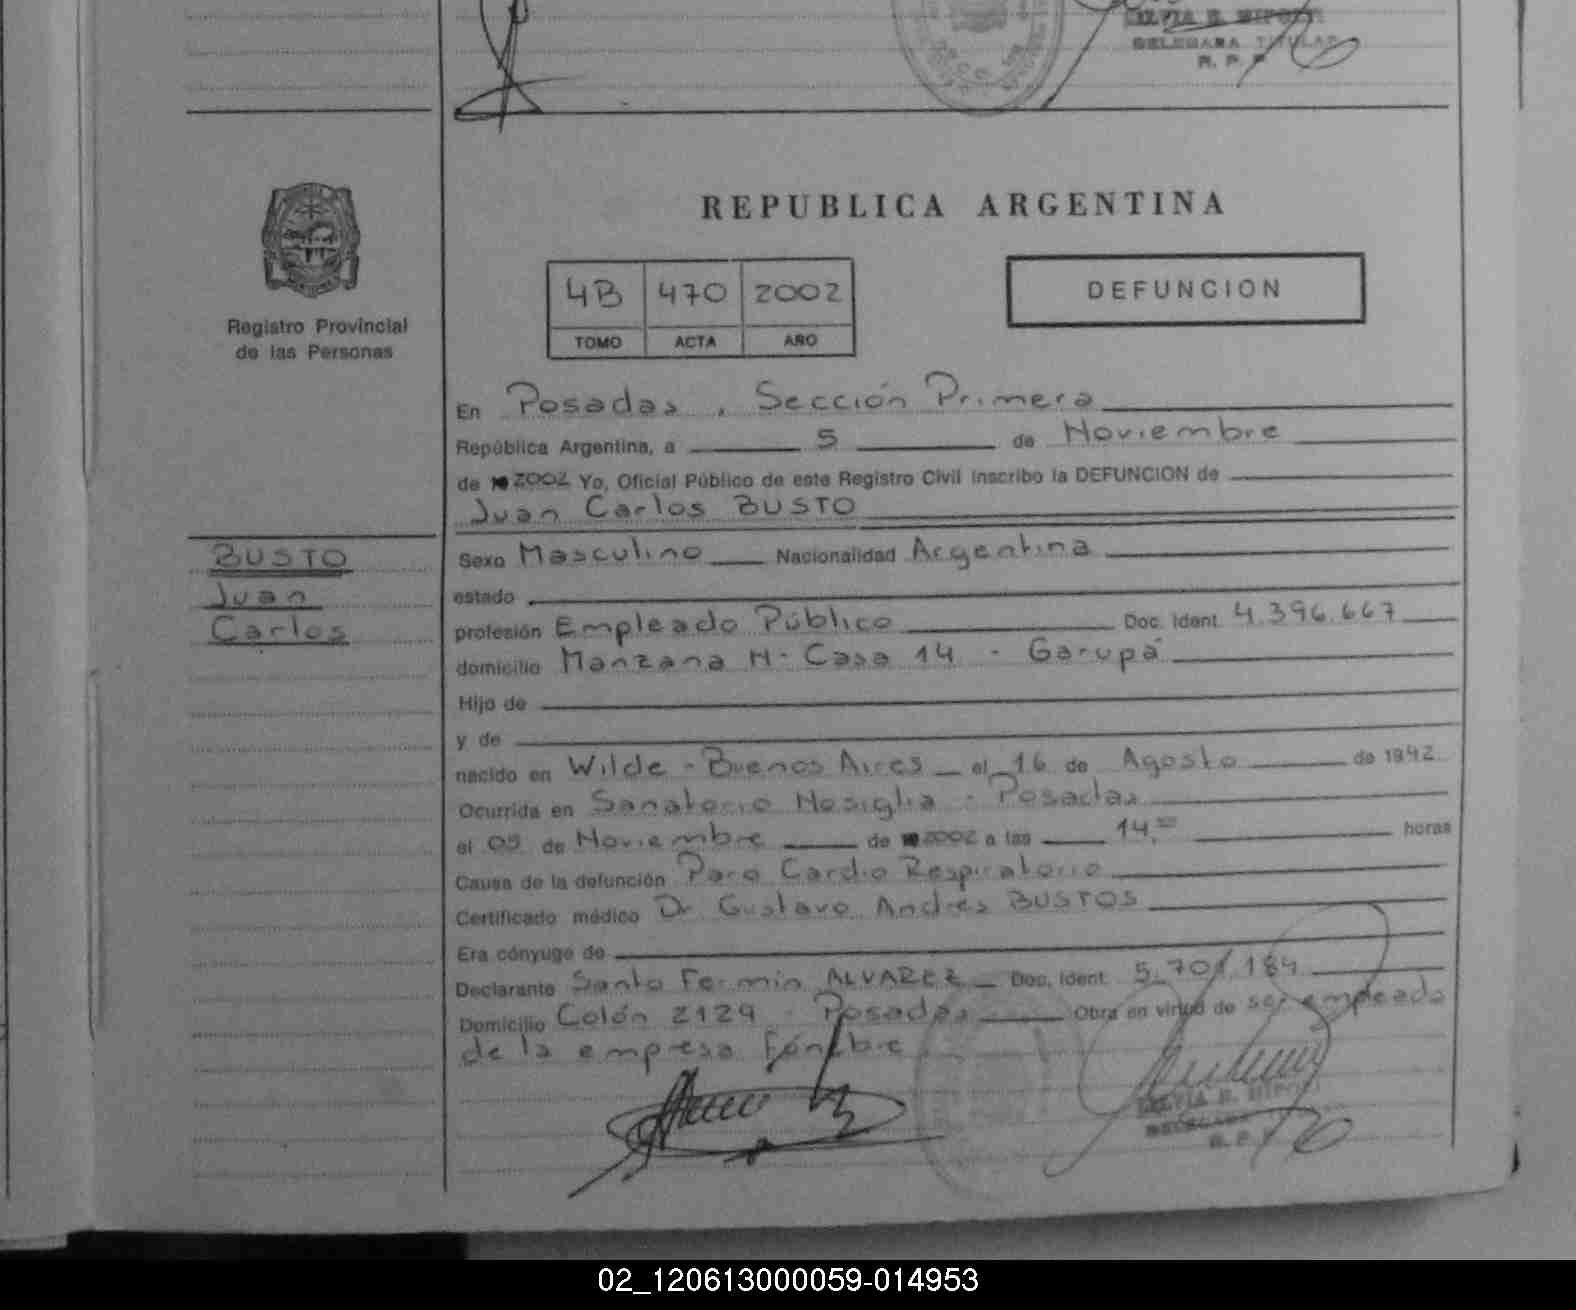 SILVIA E.
DELEGADA TITULAR
R. P. P.
REPUBLICA ARGENTINA
4B 470 2002
TOMO ACTA AÑO
DEFUNCION
Registro Provincial
de las Personas
En Posadas, Sección Primera
República Argentina, a 5 de Noviembre
de 2002 Yo, Oficial Público de este Registro Civil inscribo la DEFUNCION de
Juan Carlos BUSTO
BUSTO
Juan
Carlos
Sexo Masculino Nacionalidad Argentina
estado
profesión Empleado Público Doc. Ident. 4.396.667
domicilio Manzana H- Casa 14 - Garupá
Hijo de
y de
nacido en Wilde - Buenos Aires el 16 de Agosto de 1942
Ocurrida en Sanatorio Nosiglia - Posadas
el 05 de Noviembre de 2002 a las 14,00 horas
Causa de la defunción Paro Cardio Respiratorio
Certificado médico Dr Gustavo Andrés BUSTOS
Era cónyuge de
Declarante Santo Fermin ALVAREZ Doc. Ident. 5.701.184
Domicilio Colón 2129 - Posadas Obra en virtud de ser empleado
de la empresa Fúnebre
SILVIA E.
DELEGADA
R. P.
02_120613000059-014953